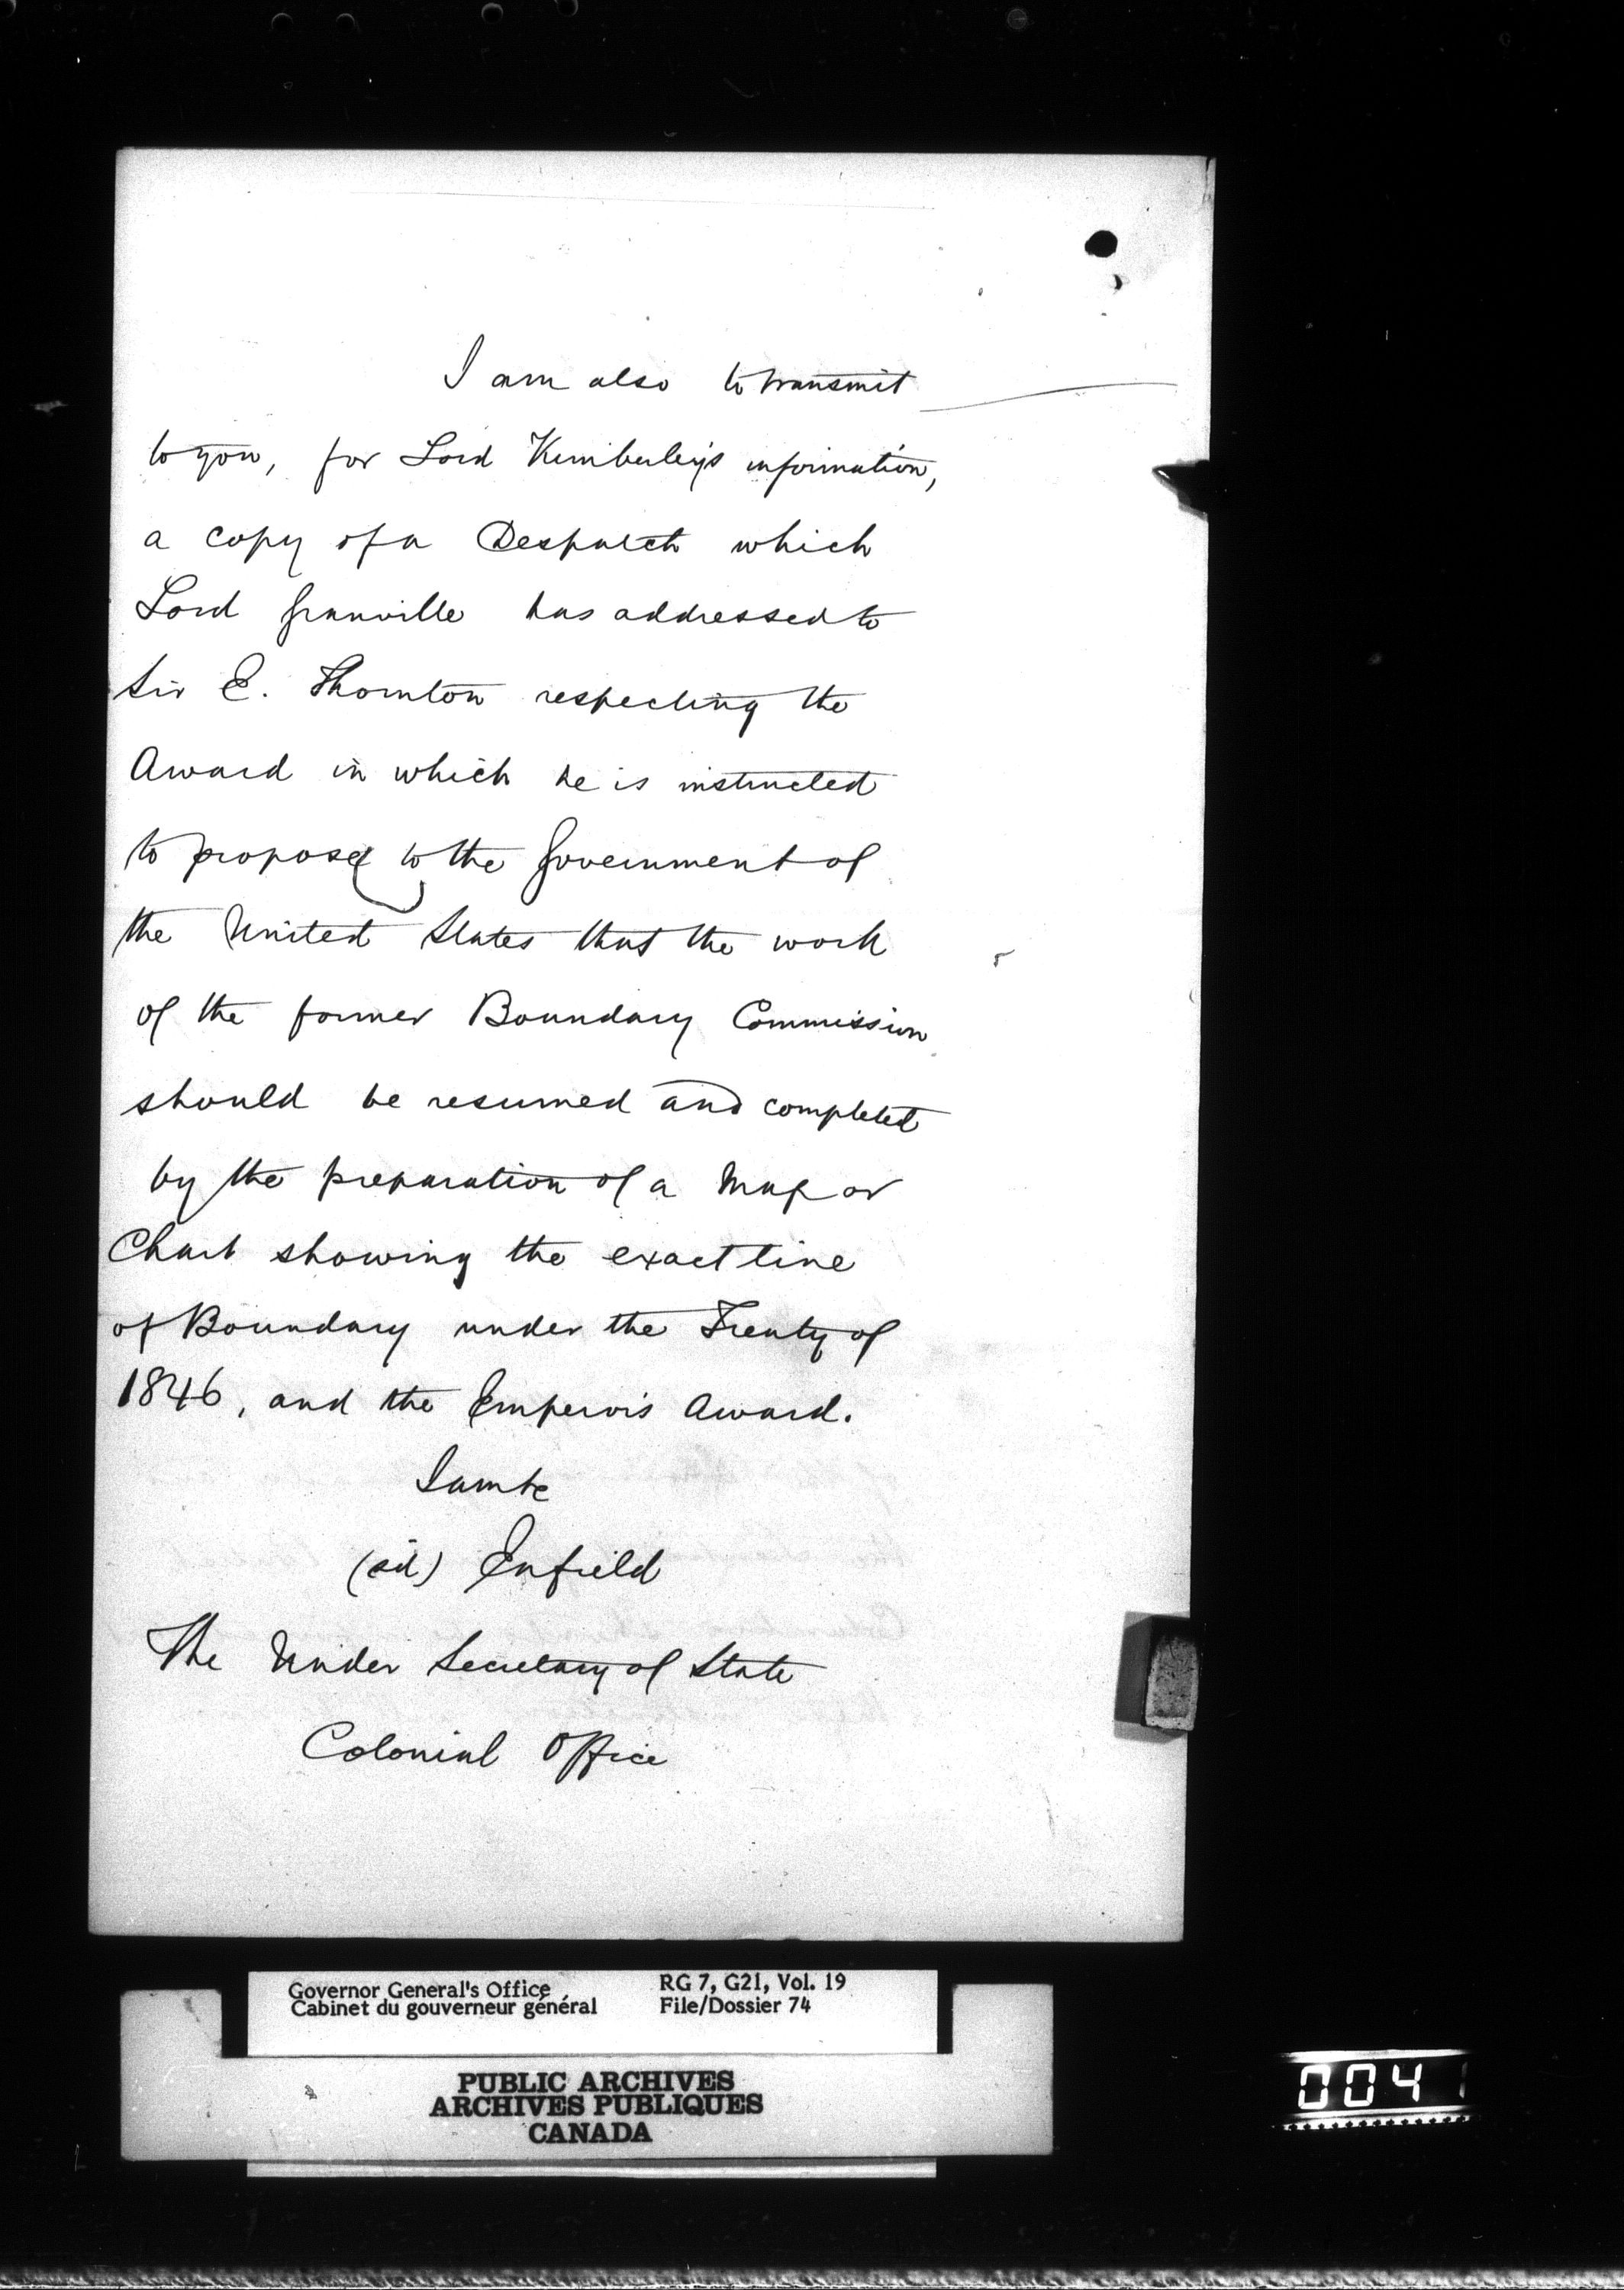 I am also to transmit
to you, for Lord Kimberley's information,
a copy of a Despatch which
Lord Granville has addressed to
Sir E. Thornton respecting the
Award in which he is instructed
to propose to the Government of
the United States that the work
of the former Boundary Commission
should be resumed and completed
by the preparation of a Map or
Chart showing the exact line
of Boundary under the Treaty of
1846, and the Emperor's Award.
I am &c
(sd) Enfield
The Under Secretary of State
Colonial Office
Governor General's Office RG 7, G21, Vol. 19
Cabinet du gouverneur général File/Dossier 74
PUBLIC ARCHIVES
ARCHIVES PUBLIQUES
CANADA
0041